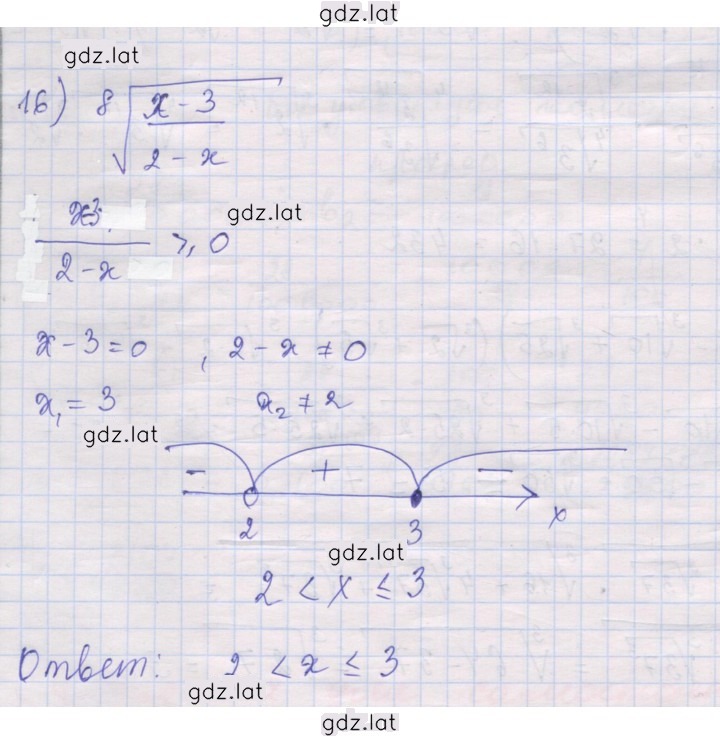 gdz.lat
gdz.lat
16) 8√((x - 3)/(2 - x))
gdz.lat
(x-3)/(2 - x) ≥ 0
x - 3 = 0 , 2 - x ≠ 0
x₁ = 3 x₂ ≠ 2
gdz.lat
- + -
2 3 x
gdz.lat
2 < x ≤ 3
Ответ: 2 < x ≤ 3
gdz.lat
gdz.lat